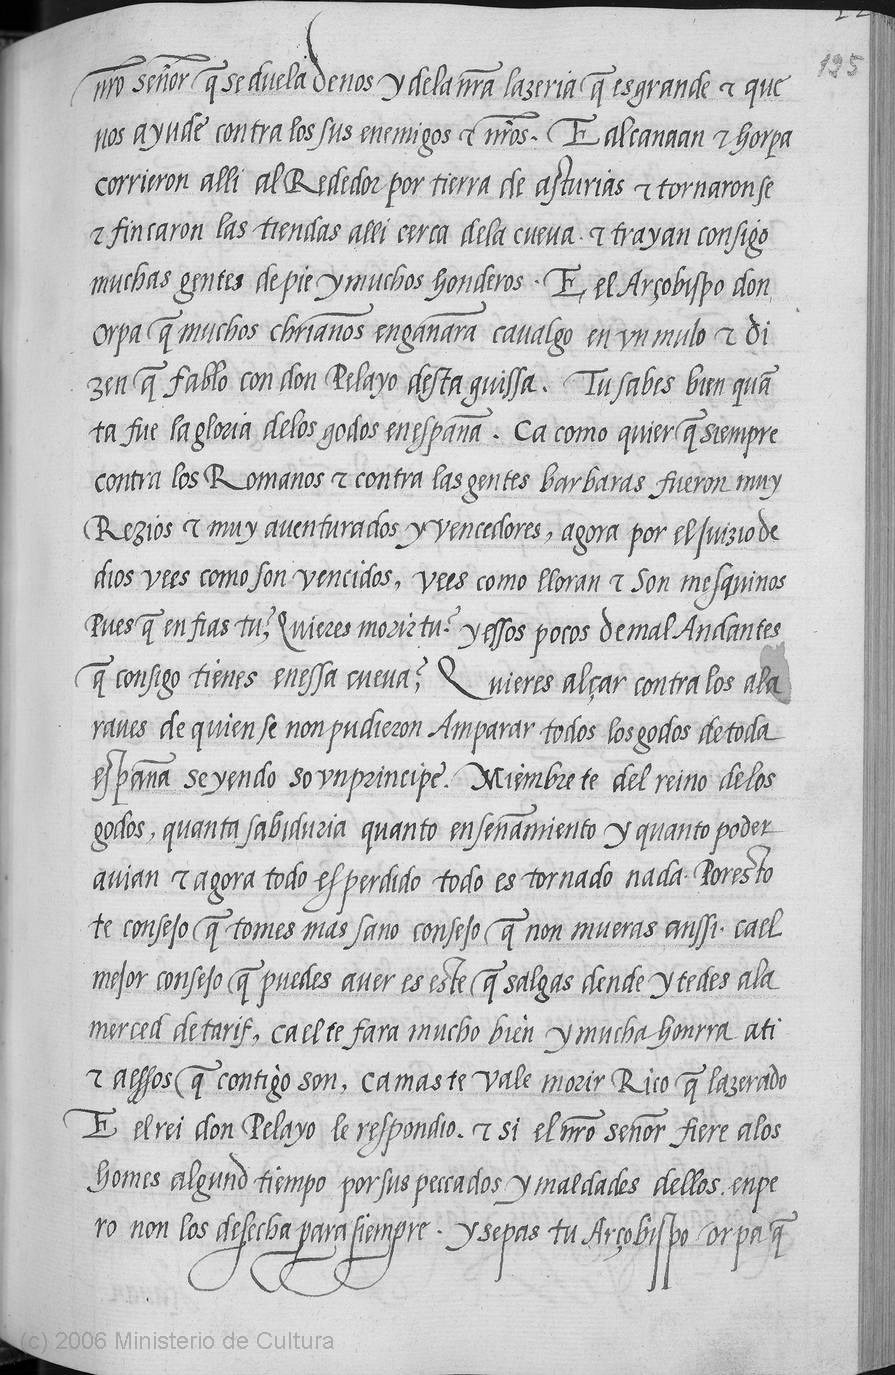 125
nr̃o señor q̃ se duela de nos y dela nr̃a lazeria q̃ es grande ⁊ que
nos ayude contra los sus enemigos ⁊ nr̃os. E alcanaan ⁊ horpa
corrieron alli al Rededor por tierra de asturias ⁊ tornaronse
⁊ fincaron las tiendas alli cerca dela cueva. ⁊ trayan consigo
muchas gentes de pie y muchos honderos. E el Arçobispo don
orpa q̃ muchos chrianos engañara cavalgo en vn mulo ⁊ di
zen q̃ fablo con don Pelayo desta guissa. Tu sabes bien quã
ta fue la gloria delos godos en españa. Ca como quier q̃ siempre
contra los Romanos ⁊ contra las gentes barbaras fueron muy
Rezios ⁊ muy aventurados y vencedores, agora por el juizio de
dios vees como son vencidos, vees como lloran ⁊ son mesquinos
Pues q̃ en fias tu? Quieres morir tu? y essos pocos de mal Andantes
q̃ consigo tienes en essa cueva? Quieres alçar contra los ala
raves de quien se non pudieron Amparar todos los godos de toda
españa seyendo so vn principe. Miembre te del reino delos
godos, quanta sabiduria quanto enseñamiento y quanto poder
avian ⁊ agora todo es perdido todo es tornado nada. Por esto
te consejo q̃ tomes mas sano consejo q̃ non mueras anssi. ca el
mejor consejo q̃ puedes aver es este q̃ salgas dende y te des ala
merced de tarif, ca el te fara mucho bien y mucha honrra ati
⁊ aessos q̃ contigo son, ca mas te vale morir Rico q̃ lazerado
E el rei don Pelayo le respondio. ⁊ si el nr̃o señor fiere alos
homes algund tiempo por sus peccados y maldades dellos. enpe
ro non los desecha para siempre. y sepas tu Arçobispo orpa q̃
(c) 2006 Ministerio de Cultura